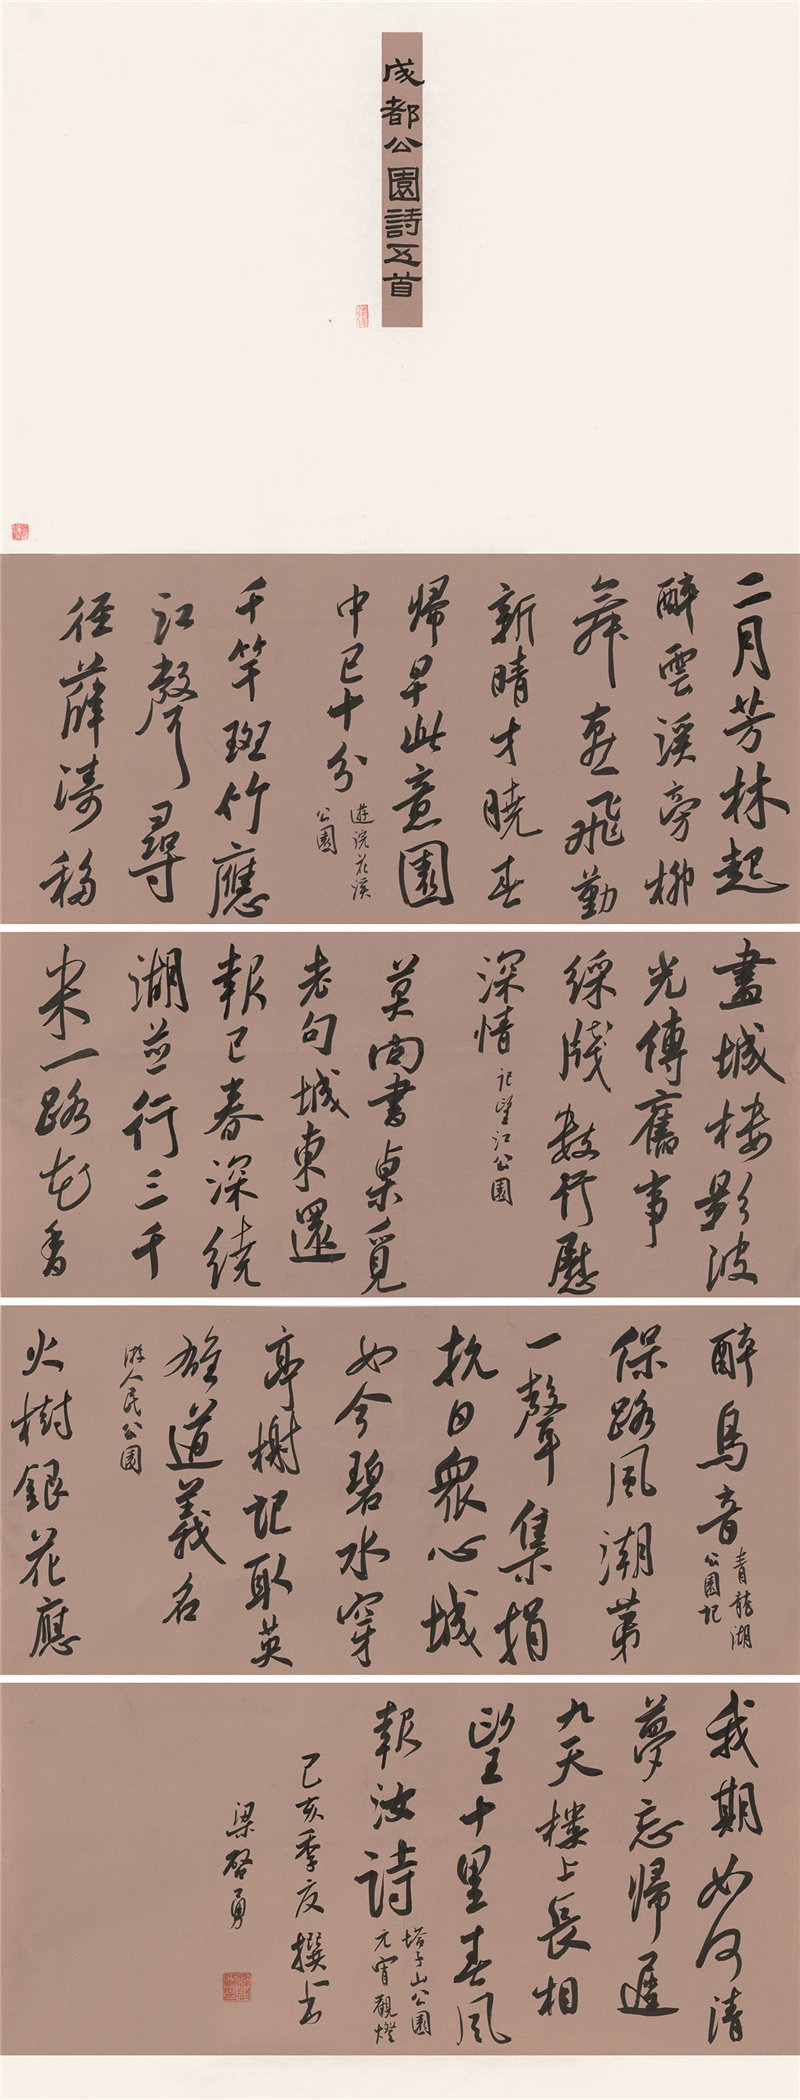 成都公園詩五首
二月芳林起
醉雲溪旁柳
舞燕飛勤
新晴才曉春
歸早此意園
中已十分
遊浣花溪
公園
千竿斑竹應
江聲尋
徑薛濤移
盡城樓影波
光傳舊事
綵牋數行慰
深情
記望江公園
莫向書桌覓
老句城東還
報已春深繞
湖並行三千
米一路花香
醉鳥音
青龍湖
公園記
保路風潮第
一聲集捐
抗日眾心城
如今碧水穿
亭榭記取英
雄道義名
游人民公園
火樹銀花應
我期如何清
夢忘歸遲
九天樓上長相
望十里春風
報汝詩
塔子山公園
元宵觀燈
己亥季夏撰書
梁啓勇